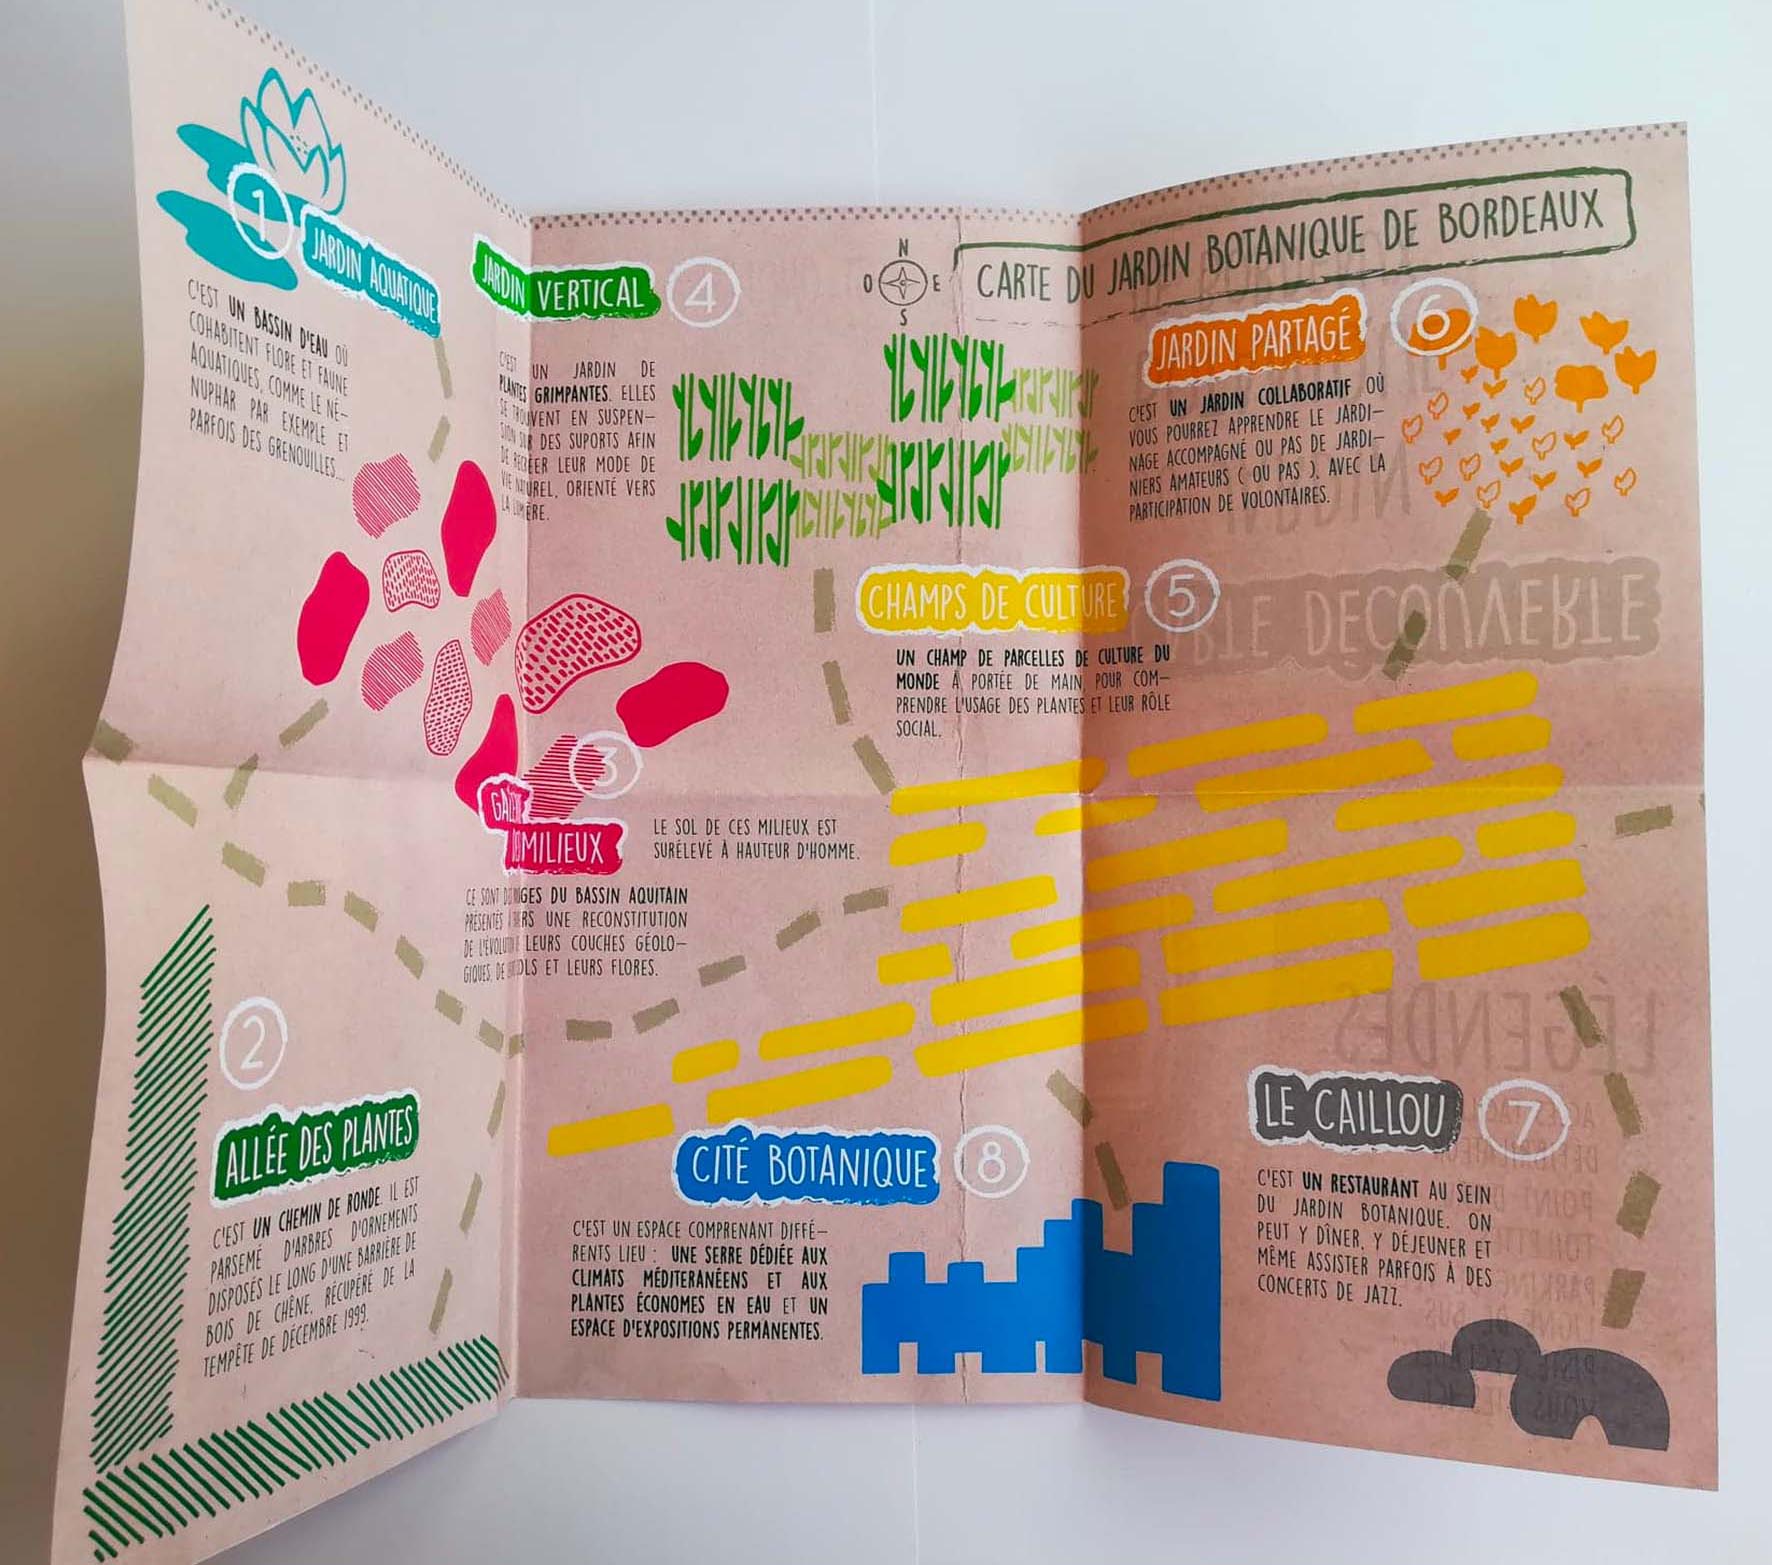 N
O E
S
CARTE DU JARDIN BOTANIQUE DE BORDEAUX
1
JARDIN AQUATIQUE
C'EST UN BASSIN D'EAU OÙ
COHABITENT FLORE ET FAUNE
AQUATIQUES, COMME LE NÉ-
NUPHAR PAR EXEMPLE ET
PARFOIS DES GRENOUILLES...
JARDIN VERTICAL 4
C'EST UN JARDIN DE
PLANTES GRIMPANTES. ELLES
SE TROUVENT EN SUSPEN-
SION SUR DES SUPORTS AFIN
DE RECRÉER LEUR MODE DE
VIE NATUREL, ORIENTÉ VERS
LA LUMIÈRE.
JARDIN PARTAGÉ 6
C'EST UN JARDIN COLLABORATIF OÙ
VOUS POURREZ APPRENDRE LE JARDI-
NAGE ACCOMPAGNÉ OU PAS DE JARDI-
NIERS AMATEURS ( OU PAS ), AVEC LA
PARTICIPATION DE VOLONTAIRES.
CHAMPS DE CULTURE 5
UN CHAMP DE PARCELLES DE CULTURE DU
MONDE À PORTÉE DE MAIN, POUR COM-
PRENDRE L'USAGE DES PLANTES ET LEUR RÔLE
SOCIAL.
3
MILIEUX
LE SOL DE CES MILIEUX EST
SURÉLEVÉ À HAUTEUR D'HOMME.
CE SONT DU BASSIN AQUITAIN
PRÉSENTÉS UNE RECONSTITUTION
DE LEURS COUCHES GÉOLO-
GIQUES, DE ET LEURS FLORES.
2
ALLÉE DES PLANTES
C'EST UN CHEMIN DE RONDE. IL EST
PARSEMÉ D'ARBRES D'ORNEMENTS
DISPOSÉS LE LONG D'UNE BARRIÈRE DE
BOIS DE CHÊNE, RÉCUPÉRÉ DE LA
TEMPÊTE DE DÉCEMBRE 1999.
CITÉ BOTANIQUE 8
C'EST UN ESPACE COMPRENANT DIFFÉ-
RENTS LIEU : UNE SERRE DÉDIÉE AUX
CLIMATS MÉDITERANÉENS ET AUX
PLANTES ÉCONOMES EN EAU ET UN
ESPACE D'EXPOSITIONS PERMANENTES.
LE CAILLOU 7
C'EST UN RESTAURANT AU SEIN
DU JARDIN BOTANIQUE. ON
PEUT Y DÎNER, Y DÉJEUNER ET
MÊME ASSISTER PARFOIS À DES
CONCERTS DE JAZZ.
DÉCOUVERTE
LÉGENDES